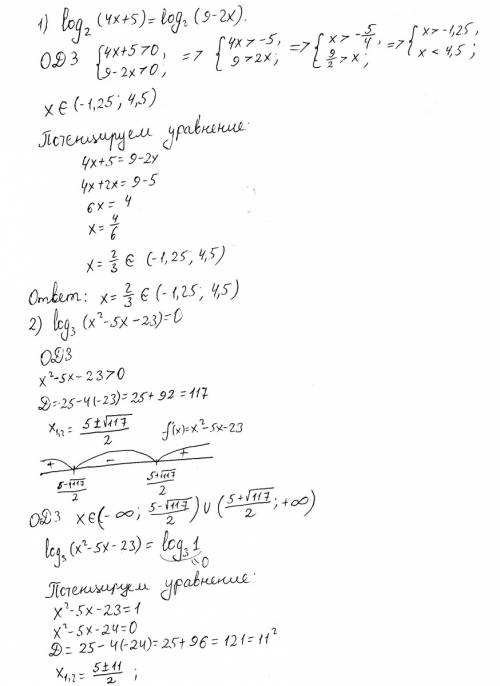 1) log₂ (4x+5) = log₂ (9-2x).
ОДЗ { 4x+5>0, 9-2x>0, => { 4x>-5, 9>2x; => { x>-5/4, 9/2>x; => { x>-1,25, x<4,5;
x ∈ (-1,25; 4,5)
Потенцируем уравнение:
4x+5=9-2x
4x+2x=9-5
6x=4
x=4/6
x=2/3 ∈ (-1,25; 4,5)
Ответ: x=2/3 ∈ (-1,25; 4,5)
2) log₃ (x²-5x-23)=0
ОДЗ
x²-5x-23>0
D=25-4(-23)=25+92=117
x₁,₂=(5±√117)/2 f(x)=x²-5x-23
+ - +
(5-√117)/2 (5+√117)/2
ОДЗ x∈(-∞; (5-√117)/2) ∪ ((5+√117)/2; +∞)
log₃ (x²-5x-23) = log₃ 1
=0
Потенцируем уравнение:
x²-5x-23=1
x²-5x-24=0
D=25-4(-24)=25+96=121=11²
x₁,₂=(5±11)/2 ;